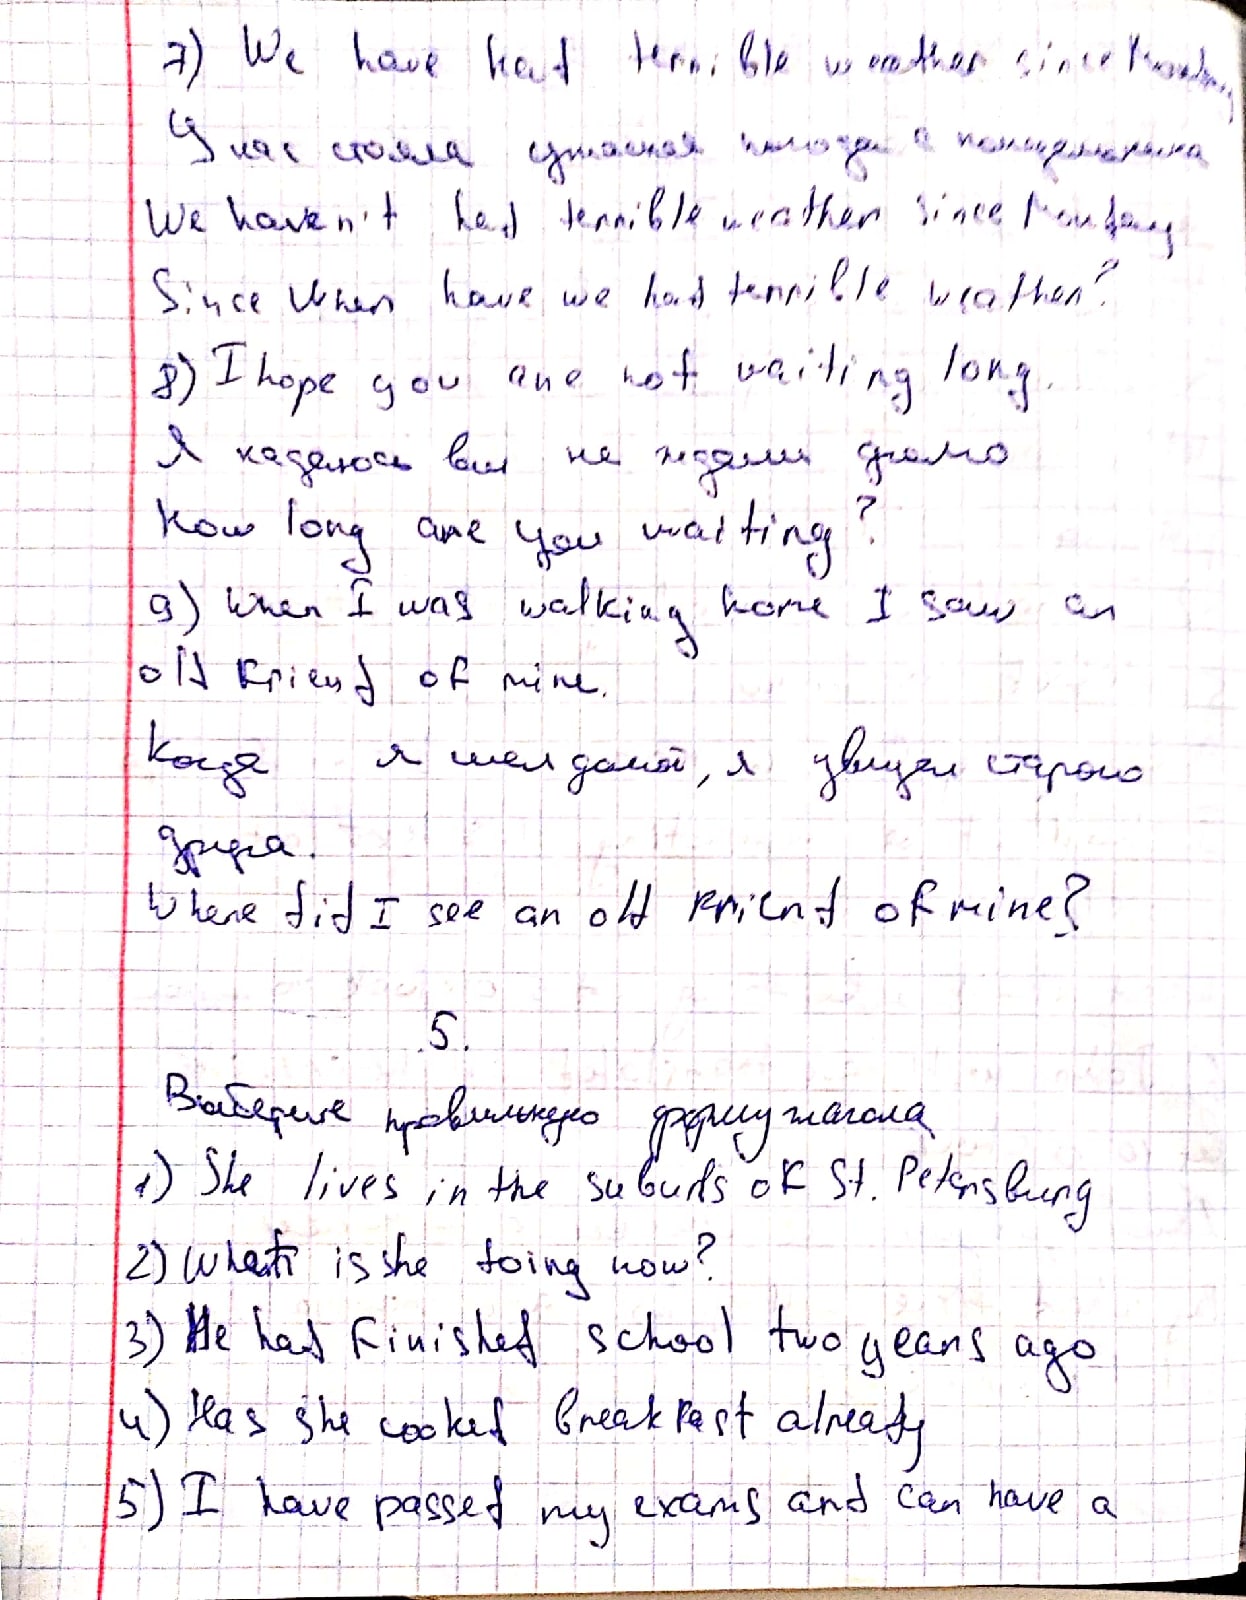 7) We have had terrible weather since Monday
У нас стояла ужасная погода с понедельника
We haven't had terrible weather since Monday
Since when have we had terrible weather?
8) I hope you are not waiting long.
Я надеюсь вы не ждали долго
How long are you waiting?
9) When I was walking home I saw an
old friend of mine.
Когда я шел домой, я увидел старого
друга.
Where did I see an old friend of mine?
5.
Выберите правильную форму глагола
1) She lives in the suburls of St. Petersburg
2) What is she doing now?
3) He had finished school two years ago
4) Has she cooked breakfast already
5) I have passed my exams and can have a